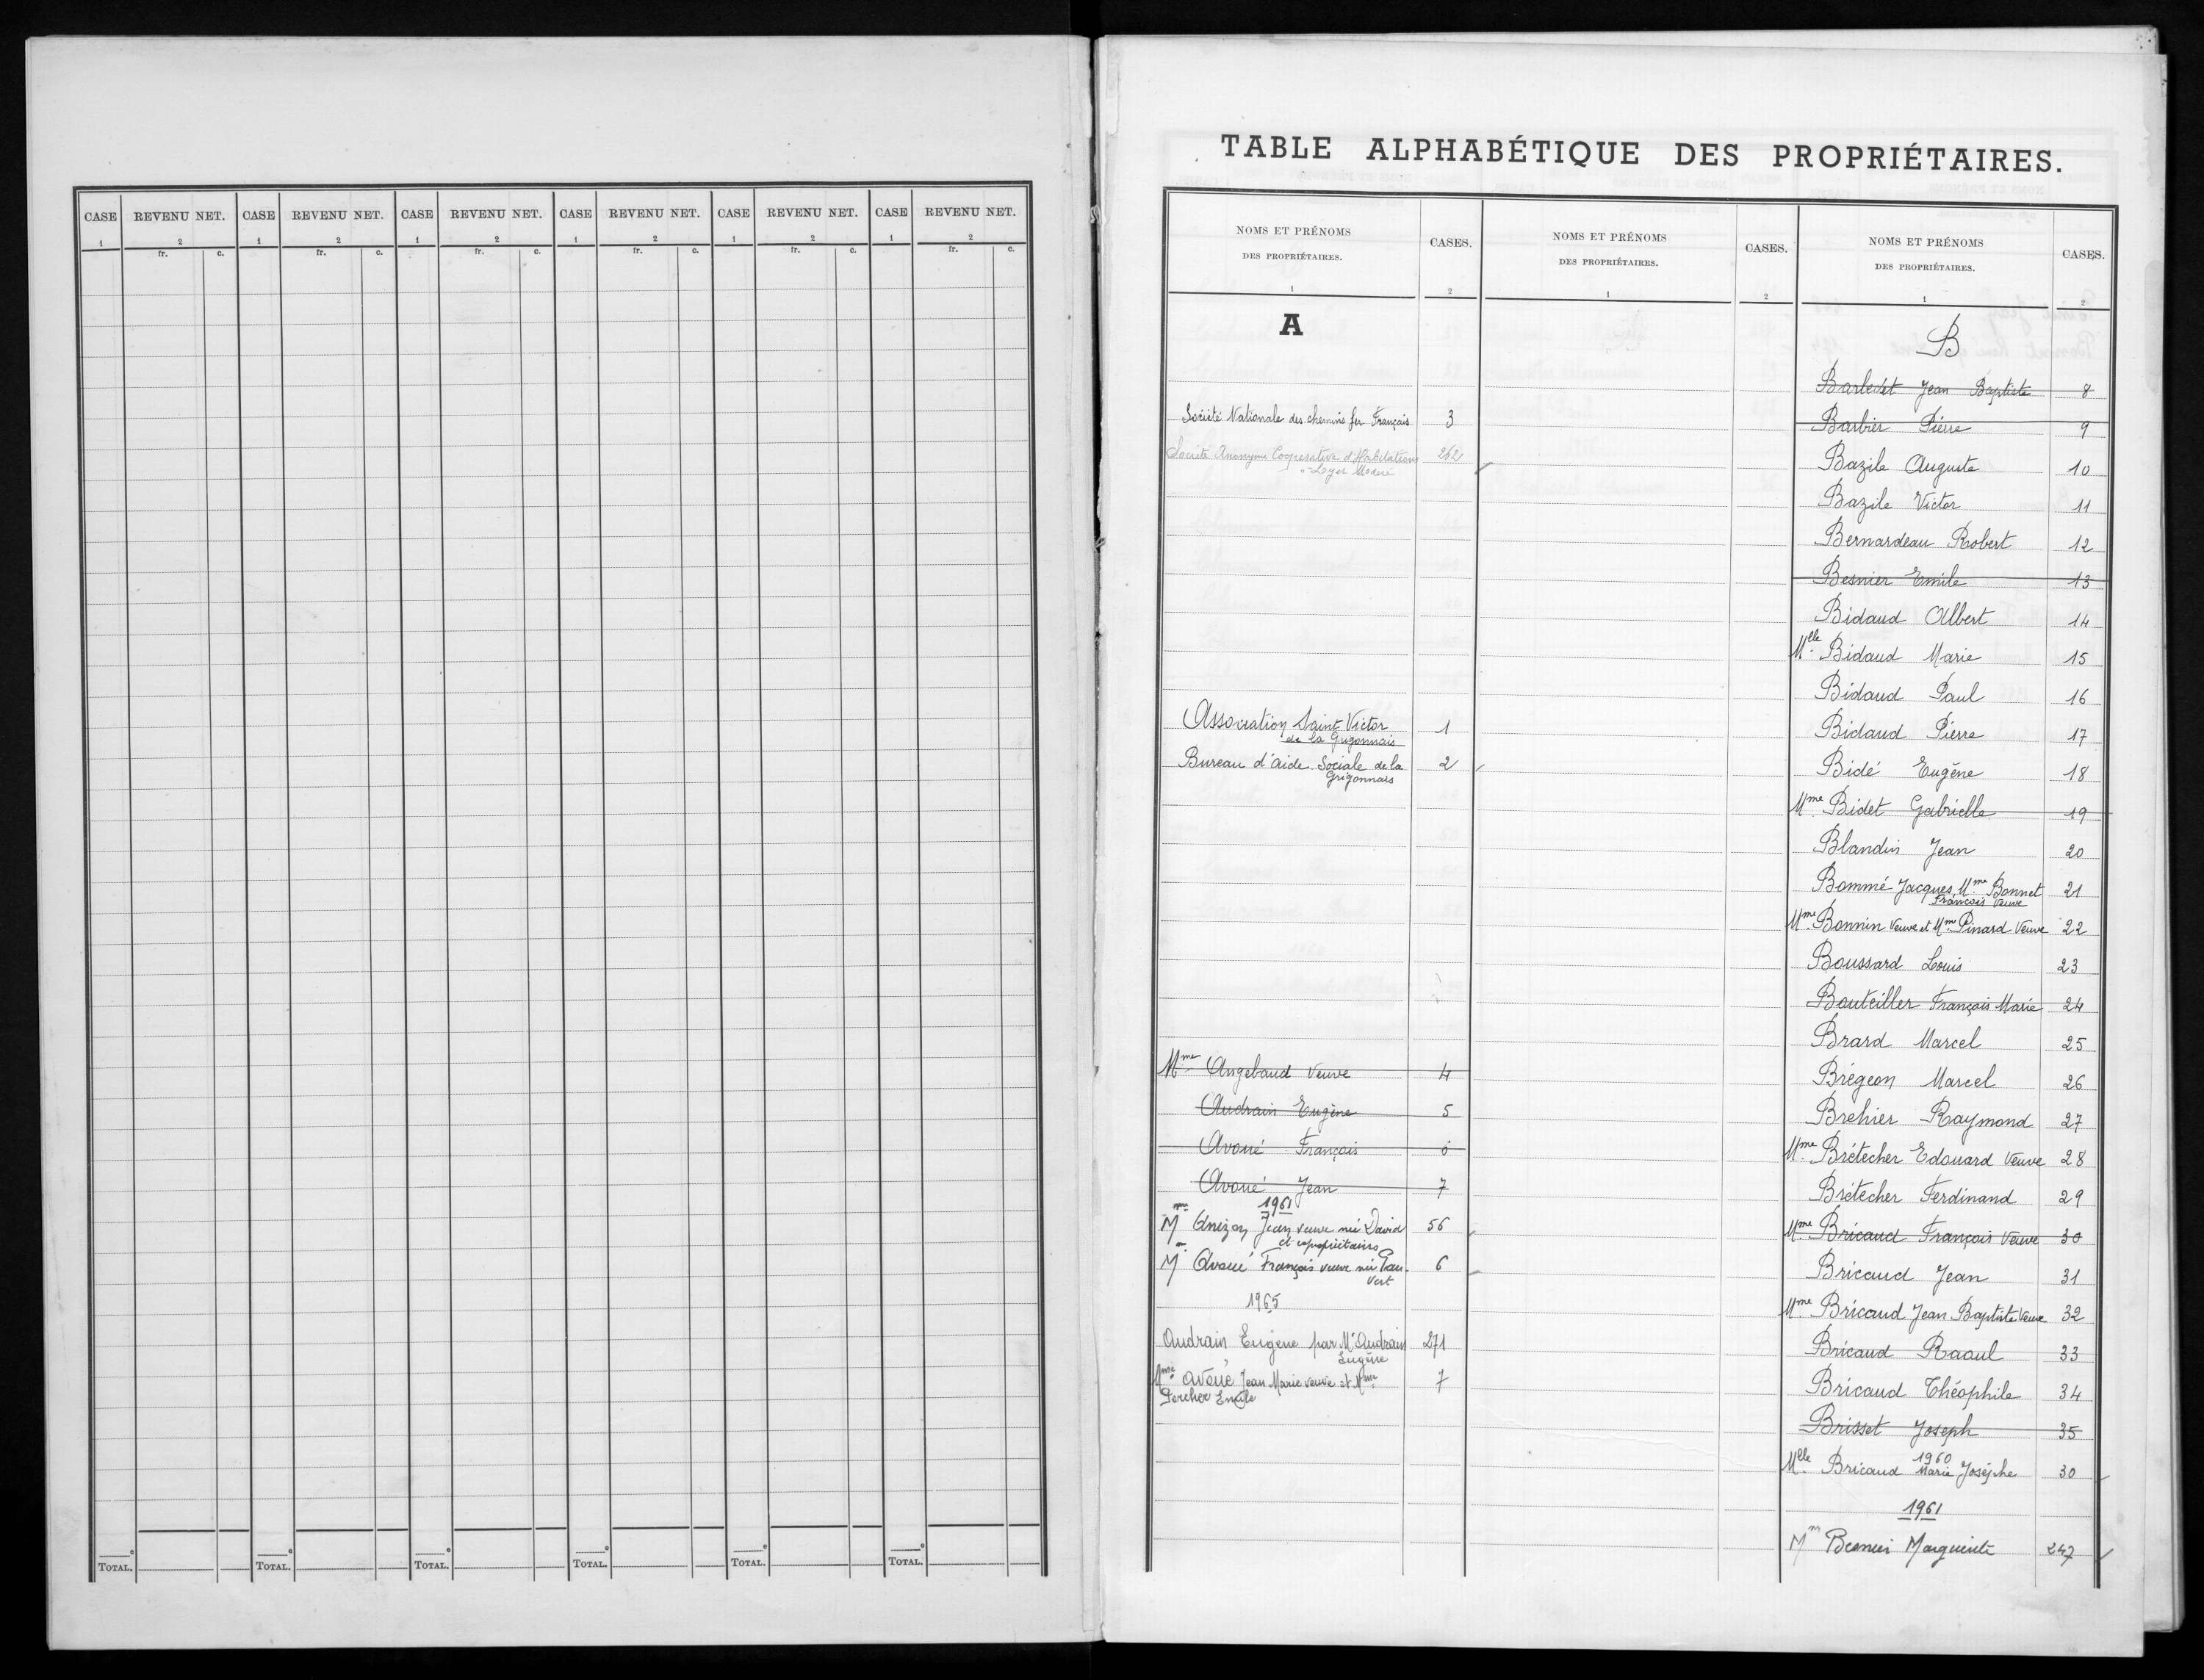 CASE REVENU NET. CASE REVENU NET. CASE REVENU NET. CASE REVENU NET. CASE REVENU NET. CASE REVENU NET.
1 2 1 2 1 2 1 2 1 2 1 2
fr. c. fr. c. fr. c. fr. c. fr. c. fr. c.
e e e e e e
TOTAL. TOTAL. TOTAL. TOTAL. TOTAL. TOTAL.
TABLE ALPHABÉTIQUE DES PROPRIÉTAIRES.
NOMS ET PRÉNOMS
DES PROPRIÉTAIRES.
CASES.
1 2
A
Société Nationale des chemins fer Français 3
Société Anonyme Cooperative d'Habitations 262
a Loyer Modéré
Association Saint Victor 1
de la Grigonnais
Bureau d'Aide Sociale de la 2
Grigonnais
Mme Angebaud Veuve 4
Audrain Eugène 5
Avoué François 6
Avoué Jean 7
1961
Mme Anizon Jean veuve née David 56
et copropriétaires
Mme Avoué François veuve née 6
Vert
1965
Audrain Eugène par Mr Audrain 271
Eugène
Mme Avoué Jean Marie veuve et Mme 7
Percher Emile
NOMS ET PRÉNOMS
DES PROPRIÉTAIRES.
CASES.
1 2
NOMS ET PRÉNOMS
DES PROPRIÉTAIRES.
CASES.
1 2
B
Jean Baptiste 8
Barbier Pierre 9
Bazile Auguste 10
Bazile Victor 11
Bernardeau Robert 12
Besnier Emile 13
Bidaud Albert 14
Melle Bidaud Marie 15
Bidaud Paul 16
Bidaud Pierre 17
Bidé Eugène 18
Mme Bidet Gabrielle 19
Blandin Jean 20
Bommé Jacques, Mme Bonnet 21
François Veuve
Mme Bonnin Veuve et Mme Pinard Veuve 22
Boussard Louis 23
Bouteiller François Marie 24
Brard Marcel 25
Brégeon Marcel 26
Brehier Raymond 27
Mme Brétecher Edouard Veuve 28
Brétecher Ferdinand 29
Mme Bricaud François Veuve 30
Bricaud Jean 31
Mme Bricaud Jean Baptiste Veuve 32
Bricaud Raoul 33
Bricaud Théophile 34
Brisset Joseph 35
1960
Melle Bricaud Marie Josèphe 30
1961
Mme Besnier Marguerite 247